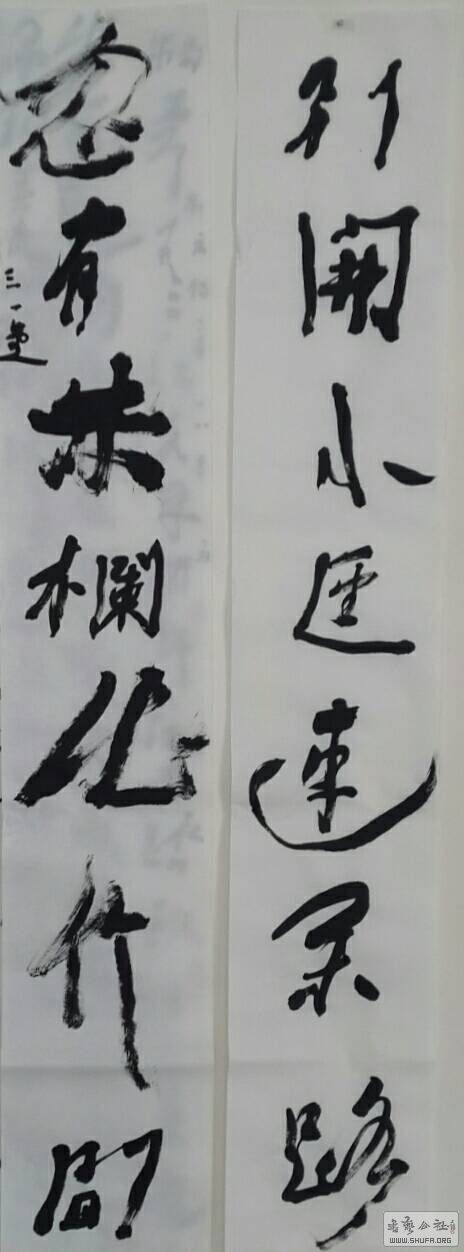 别開小迳連枀路
忽有朱欄化竹間
三一
書藝公社
WWW.SHUFA.ORG